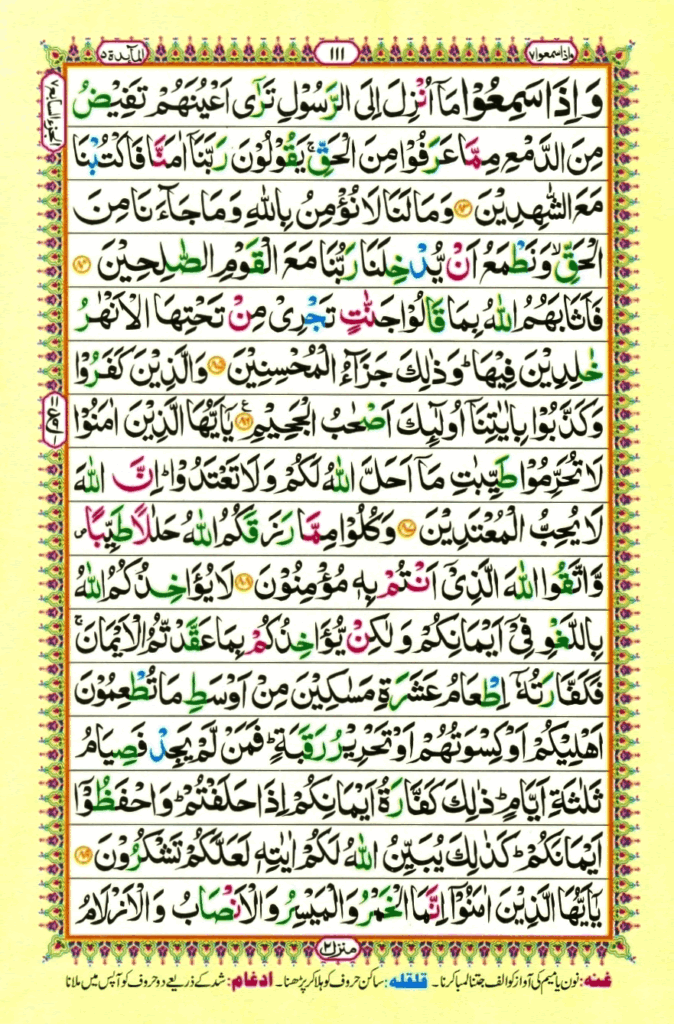 واذاسمعوا۷
۱۱۱
المآىدة۵
الجزء السابع۷
وَ اِذَا سَمِعُوْا مَاۤ اُنْزِلَ اِلَى الرَّسُوْلِ تَرٰۤى اَعْیُنَهُمْ تَفِیْضُ
مِنَ الدَّمْعِ مِمَّا عَرَفُوْا مِنَ الْحَقِّ ۚ یَقُوْلُوْنَ رَبَّنَاۤ اٰمَنَّا فَاكْتُبْنَا
مَعَ الشّٰهِدِیْنَ ۝۸۳ وَ مَا لَنَا لَا نُؤْمِنُ بِاللّٰهِ وَ مَا جَآءَنَا مِنَ
الْحَقِّ ۙ وَ نَطْمَعُ اَنْ یُّدْخِلَنَا رَبُّنَا مَعَ الْقَوْمِ الصّٰلِحِیْنَ ۝۸۴
فَاَثَابَهُمُ اللّٰهُ بِمَا قَالُوْا جَنّٰتٍ تَجْرِیْ مِنْ تَحْتِهَا الْاَنْهٰرُ
خٰلِدِیْنَ فِیْهَا ؕ وَ ذٰلِكَ جَزَآءُ الْمُحْسِنِیْنَ ۝۸۵ وَ الَّذِیْنَ كَفَرُوْا
وَ كَذَّبُوْا بِاٰیٰتِنَاۤ اُولٰٓىِٕكَ اَصْحٰبُ الْجَحِیْمِ ۝۸۶ ع یٰۤاَیُّهَا الَّذِیْنَ اٰمَنُوْا
لَا تُحَرِّمُوْا طَیِّبٰتِ مَاۤ اَحَلَّ اللّٰهُ لَكُمْ وَ لَا تَعْتَدُوْا ؕ اِنَّ اللّٰهَ
لَا یُحِبُّ الْمُعْتَدِیْنَ ۝۸۷ وَ كُلُوْا مِمَّا رَزَقَكُمُ اللّٰهُ حَلٰلًا طَیِّبًا ۪
وَّ اتَّقُوا اللّٰهَ الَّذِیْۤ اَنْتُمْ بِهٖ مُؤْمِنُوْنَ ۝۸۸ لَا یُؤَاخِذُكُمُ اللّٰهُ
بِاللَّغْوِ فِیْۤ اَیْمَانِكُمْ وَ لٰكِنْ یُّؤَاخِذُكُمْ بِمَا عَقَّدْتُّمُ الْاَیْمَانَ ۚ
فَكَفَّارَتُهٗۤ اِطْعَامُ عَشَرَةِ مَسٰكِیْنَ مِنْ اَوْسَطِ مَا تُطْعِمُوْنَ
اَهْلِیْكُمْ اَوْ كِسْوَتُهُمْ اَوْ تَحْرِیْرُ رَقَبَةٍ ؕ فَمَنْ لَّمْ یَجِدْ فَصِیَامُ
ثَلٰثَةِ اَیَّامٍ ؕ ذٰلِكَ كَفَّارَةُ اَیْمَانِكُمْ اِذَا حَلَفْتُمْ ؕ وَ احْفَظُوْۤا
اَیْمَانَكُمْ ؕ كَذٰلِكَ یُبَیِّنُ اللّٰهُ لَكُمْ اٰیٰتِهٖ لَعَلَّكُمْ تَشْكُرُوْنَ ۝۸۹
یٰۤاَیُّهَا الَّذِیْنَ اٰمَنُوْۤا اِنَّمَا الْخَمْرُ وَ الْمَیْسِرُ وَ الْاَنْصَابُ وَ الْاَزْلَامُ
منزل۲
غنه: نون یا میم کی آواز کو الف جتنا لمبا کرنا۔ قلقله: ساکن حروف کو ہلا کر پڑھنا۔ ادغام: شد کے ذریعے دو حروف کو آپس میں ملانا